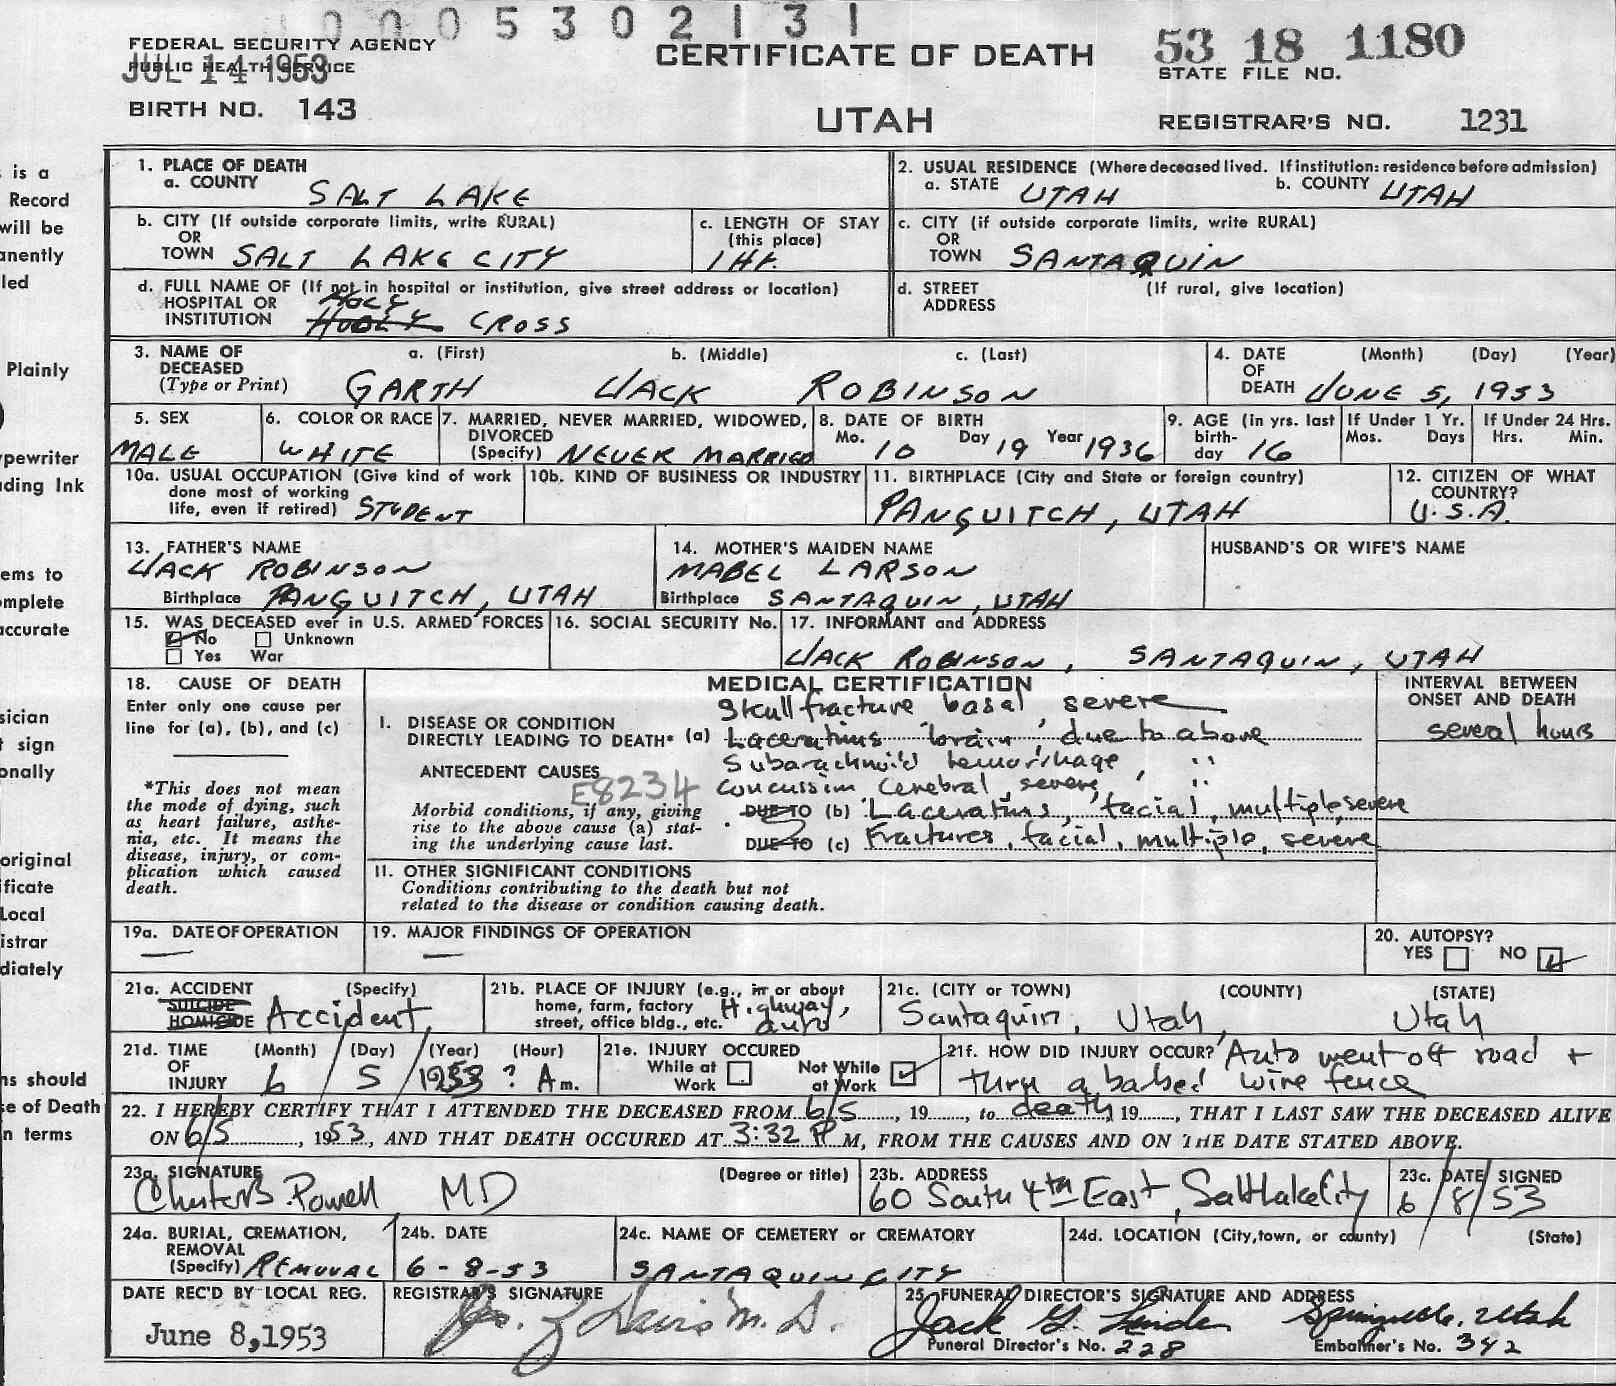 0005302131
FEDERAL SECURITY AGENCY
PUBLIC HEALTH SERVICE
JUL 14 1953
BIRTH NO. 143
CERTIFICATE OF DEATH
UTAH
53 18 1180
STATE FILE NO.
REGISTRAR'S NO. 1231
is a
Record
will be
anently
led
Plainly
ypewriter
ding Ink
ems to
omplete
accurate
sician
t sign
onally
original
ificate
Local
istrar
diately
ns should
se of Death
n terms
1. PLACE OF DEATH
a. COUNTY SALT LAKE
2. USUAL RESIDENCE (Where deceased lived. If institution: residence before admission)
a. STATE UTAH b. COUNTY UTAH
b. CITY (If outside corporate limits, write RURAL)
OR
TOWN SALT LAKE CITY
c. LENGTH OF STAY
(this place)
1 HR.
c. CITY (if outside corporate limits, write RURAL)
OR
TOWN SANTAQUIN
d. FULL NAME OF (If not in hospital or institution, give street address or location)
HOSPITAL OR HOLY
INSTITUTION HOOLY CROSS
d. STREET (If rural, give location)
ADDRESS
3. NAME OF DECEASED a. (First) b. (Middle) c. (Last)
(Type or Print) GARTH JACK ROBINSON
4. DATE OF DEATH (Month) (Day) (Year)
JUNE 5, 1953
5. SEX
MALE
6. COLOR OR RACE
WHITE
7. MARRIED, NEVER MARRIED, WIDOWED,
DIVORCED
(Specify) NEVER MARRIED
8. DATE OF BIRTH
Mo. 10 Day 19 Year 1936
9. AGE (in yrs. last
birth-
day 16
If Under 1 Yr.
Mos. Days
If Under 24 Hrs.
Hrs. Min.
10a. USUAL OCCUPATION (Give kind of work
done most of working
life, even if retired) STUDENT
10b. KIND OF BUSINESS OR INDUSTRY
11. BIRTHPLACE (City and State or foreign country)
PANGUITCH, UTAH
12. CITIZEN OF WHAT
COUNTRY?
U.S.A.
13. FATHER'S NAME
JACK ROBINSON
Birthplace PANGUITCH, UTAH
14. MOTHER'S MAIDEN NAME
MABEL LARSON
Birthplace SANTAQUIN, UTAH
HUSBAND'S OR WIFE'S NAME
15. WAS DECEASED ever in U.S. ARMED FORCES
No Unknown
Yes War
16. SOCIAL SECURITY No.
17. INFORMANT and ADDRESS
JACK ROBINSON, SANTAQUIN, UTAH
18. CAUSE OF DEATH
Enter only one cause per
line for (a), (b), and (c)
*This does not mean
the mode of dying, such
as heart failure, asthe-
nia, etc. It means the
disease, injury, or com-
plication which caused
death.
MEDICAL CERTIFICATION
Skull fracture basal, severe
I. DISEASE OR CONDITION
DIRECTLY LEADING TO DEATH* (a) Lacerations brain, due to above
Subarachnoid hemorrhage, "
ANTECEDENT CAUSES
E8234 Concussion cerebral, severe, "
Morbid conditions, if any, giving
rise to the above cause (a) stat-
ing the underlying cause last.
DUE TO (b) Lacerations, facial, multiple, severe
DUE TO (c) Fractures, facial, multiple, severe
INTERVAL BETWEEN
ONSET AND DEATH
several hours
11. OTHER SIGNIFICANT CONDITIONS
Conditions contributing to the death but not
related to the disease or condition causing death.
19a. DATE OF OPERATION
—
19. MAJOR FINDINGS OF OPERATION
—
20. AUTOPSY?
YES NO
21a. ACCIDENT (Specify)
SUICIDE
HOMICIDE Accident
21b. PLACE OF INJURY (e.g., in or about
home, farm, factory
street, office bldg., etc. Highway, auto
21c. (CITY or TOWN) (COUNTY) (STATE)
Santaquin, Utah, Utah
21d. TIME OF INJURY (Month) (Day) (Year) (Hour)
6 / 5 / 1953 ? A m.
21e. INJURY OCCURED
While at Work Not While at Work
21f. HOW DID INJURY OCCUR? Auto went off road +
thru a babed wire fence
22. I HEREBY CERTIFY THAT I ATTENDED THE DECEASED FROM 6/5, 19, to death, 19, THAT I LAST SAW THE DECEASED ALIVE
ON 6/5, 1953, AND THAT DEATH OCCURED AT 3:32 P M, FROM THE CAUSES AND ON THE DATE STATED ABOVE.
23a. SIGNATURE (Degree or title)
Chester B. Powell MD
23b. ADDRESS
60 South 4th East, Salt Lake City
23c. DATE SIGNED
6/8/53
24a. BURIAL, CREMATION,
REMOVAL
(Specify) REMOVAL
24b. DATE
6-8-53
24c. NAME OF CEMETERY or CREMATORY
SANTAQUIN CITY
24d. LOCATION (City, town, or county) (State)
DATE REC'D BY LOCAL REG.
June 8, 1953
REGISTRAR'S SIGNATURE
Davis M.D.
25. FUNERAL DIRECTOR'S SIGNATURE AND ADDRESS
Jack G. Springville, Utah
Funeral Director's No. 228 Embalmer's No. 342